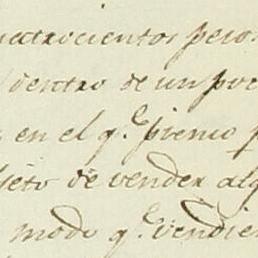 cuatrocientos pesos
dentro de un poc
en el q.e pienso p
jeto de vender alg
modo q.e vendien